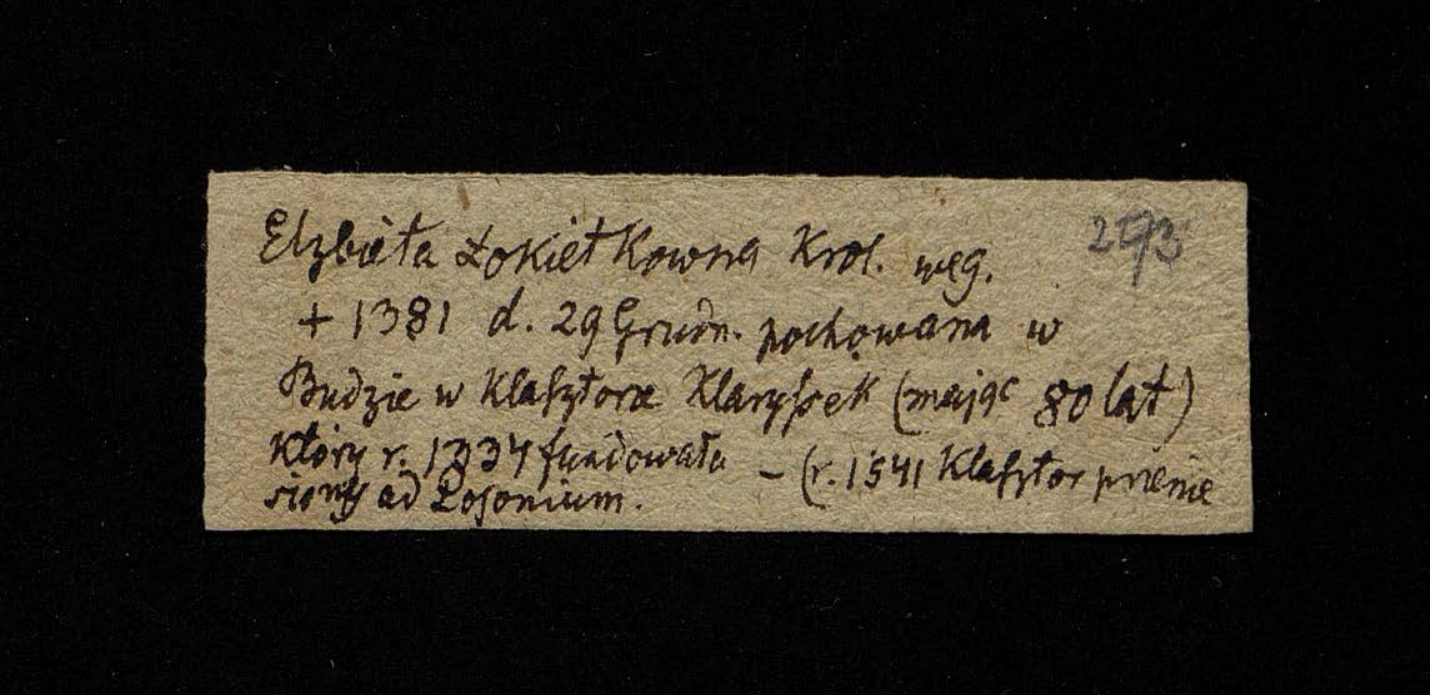 Elzbieta Łokietkowna Krol. węg.
+ 1381 d. 29 Grudn. pochowana w
Budzie w Klasztorze Klaryssek (mając 80 lat)
który r. 1334 fundowała – (r. 1541 Klasztor przenie
siony ad Posonium.